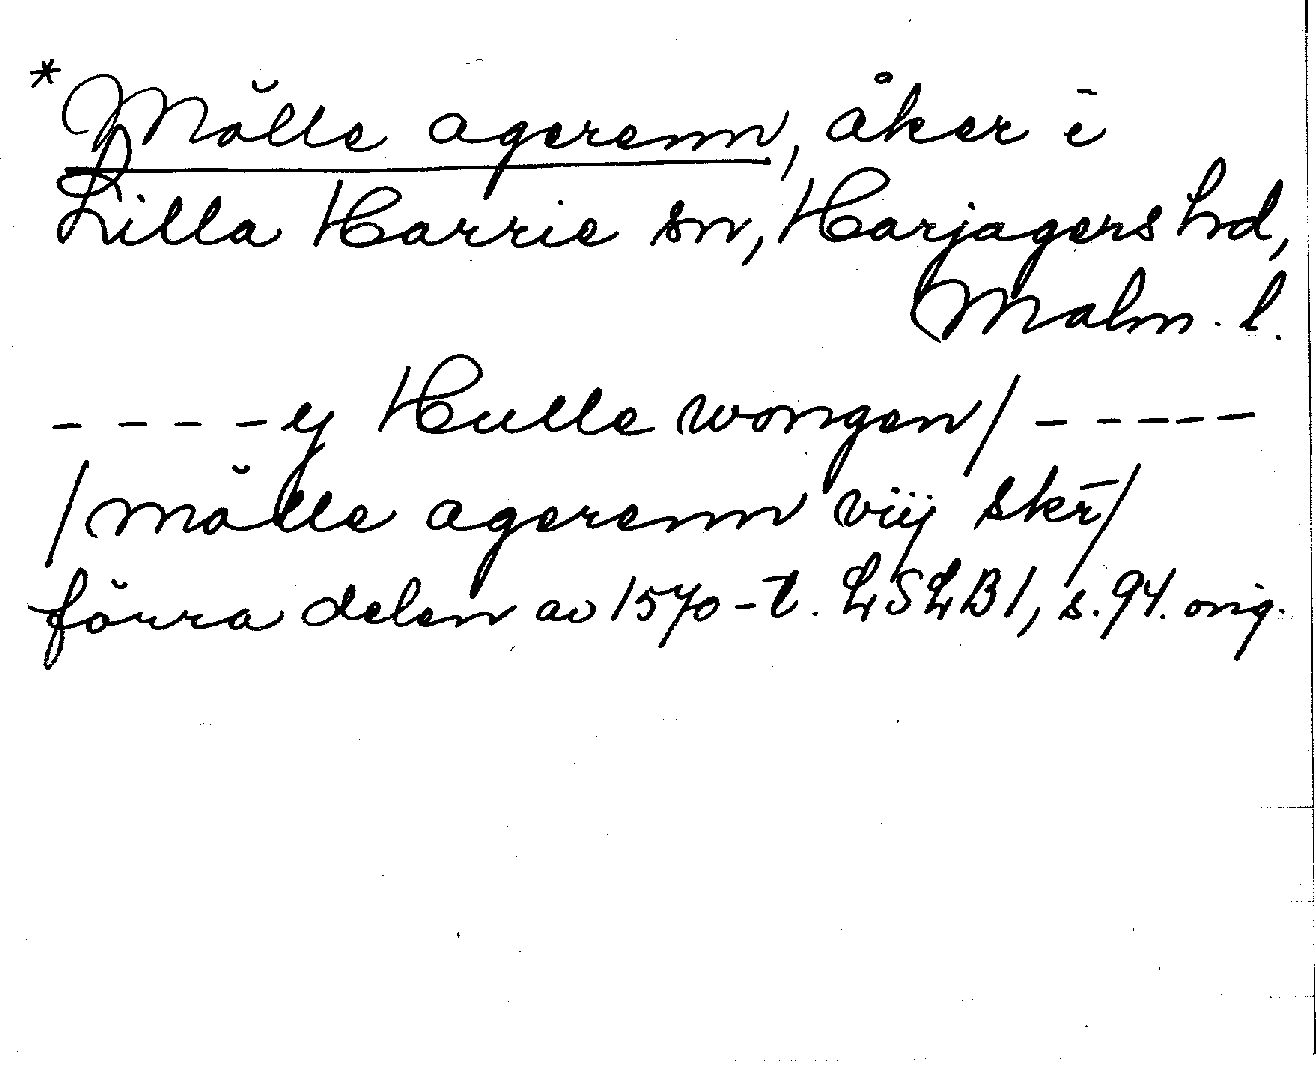 *Mölle agerenn, åker i
Lilla Harrie sn, Harjagers hd,
Malm. l.
- - - - y Hulle wongen/ - - - - -
/mölle agerenn viij skr̄/
förra delen av 1570-t. LSLB1, s. 94. orig.